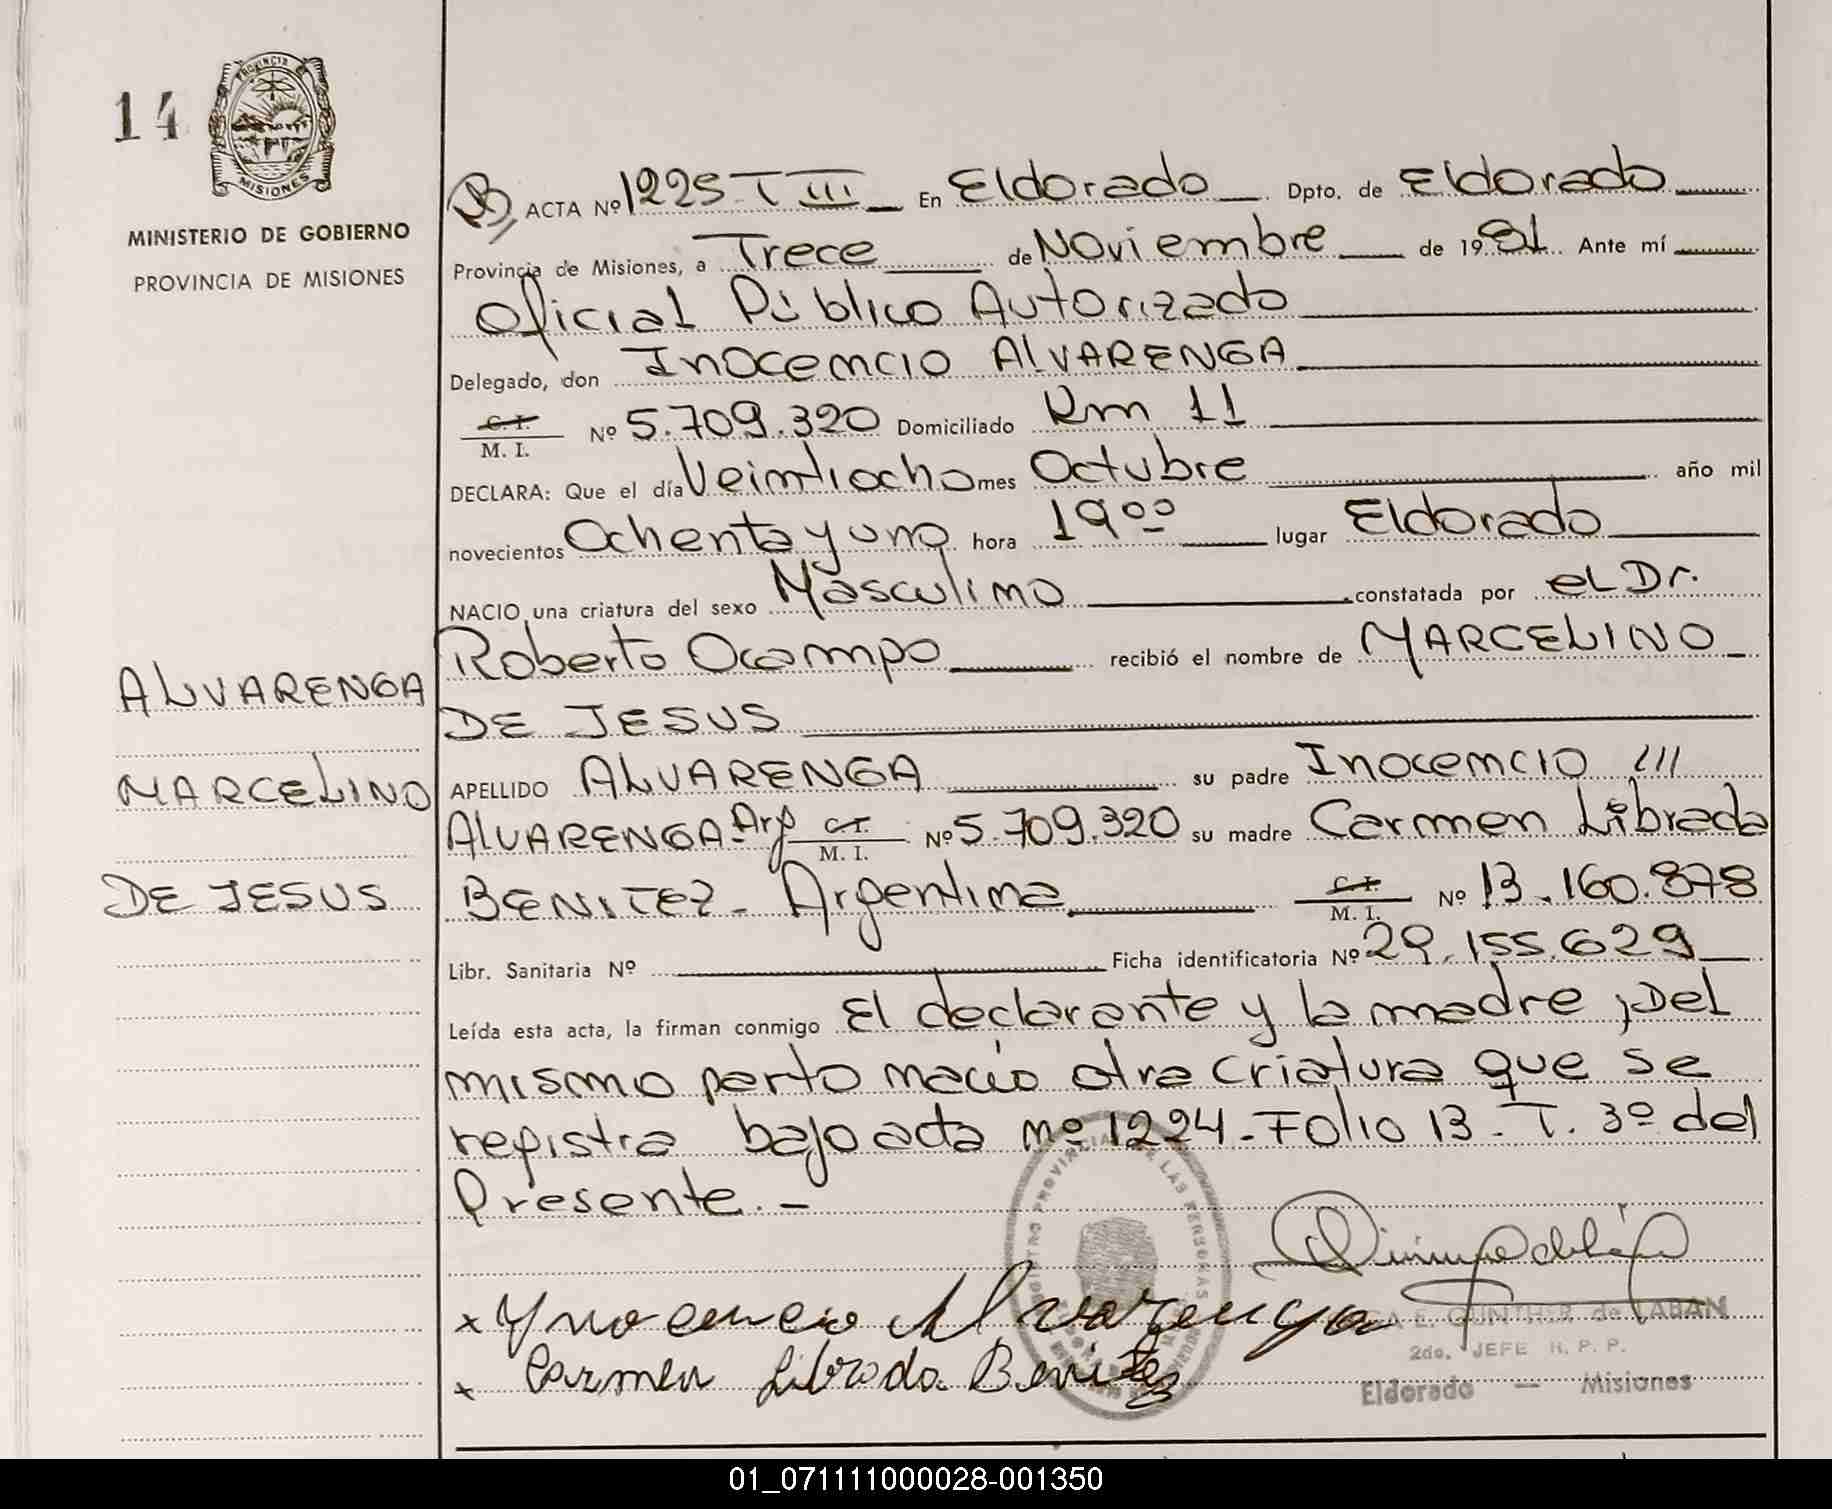 14
PROVINCIA DE
MISIONES
MINISTERIO DE GOBIERNO
PROVINCIA DE MISIONES
ALVARENGA
MARCELINO
DE JESUS
ACTA Nº 1225-T III En Eldorado Dpto. de Eldorado
Provincia de Misiones, a Trece de Noviembre de 1981 Ante mí
Oficial Público Autorizado
Delegado, don Inocencio ALVARENGA
C. I. M. I. Nº 5.709.320 Domiciliado Km 11
DECLARA: Que el día Veintiocho mes Octubre año mil
novecientos Ochenta y uno hora 19ºº lugar Eldorado
NACIO una criatura del sexo Masculino constatada por el Dr.
Roberto Ocampo recibió el nombre de MARCELINO
DE JESUS
APELLIDO ALVARENGA su padre Inocencio ///
ALVARENGA-Arg C.I. M. I. Nº 5.709.320 su madre Carmen Librada
BENITEZ- Argentina C.I. M. I. Nº 13.160.878
Libr. Sanitaria Nº Ficha identificatoria Nº 29.155.629
Leída esta acta, la firman conmigo El declarante y la madre ; Del
mismo parto nació otra criatura que se
registra bajo acta nº 1224-Folio 13-T. 3º del
Presente.-
x Ynocencio Alvarenga
x Carmen Librada Benitez
E. GUNTHER de LABAN
2do. JEFE R. P. P.
Eldorado — Misiones
01_071111000028-001350